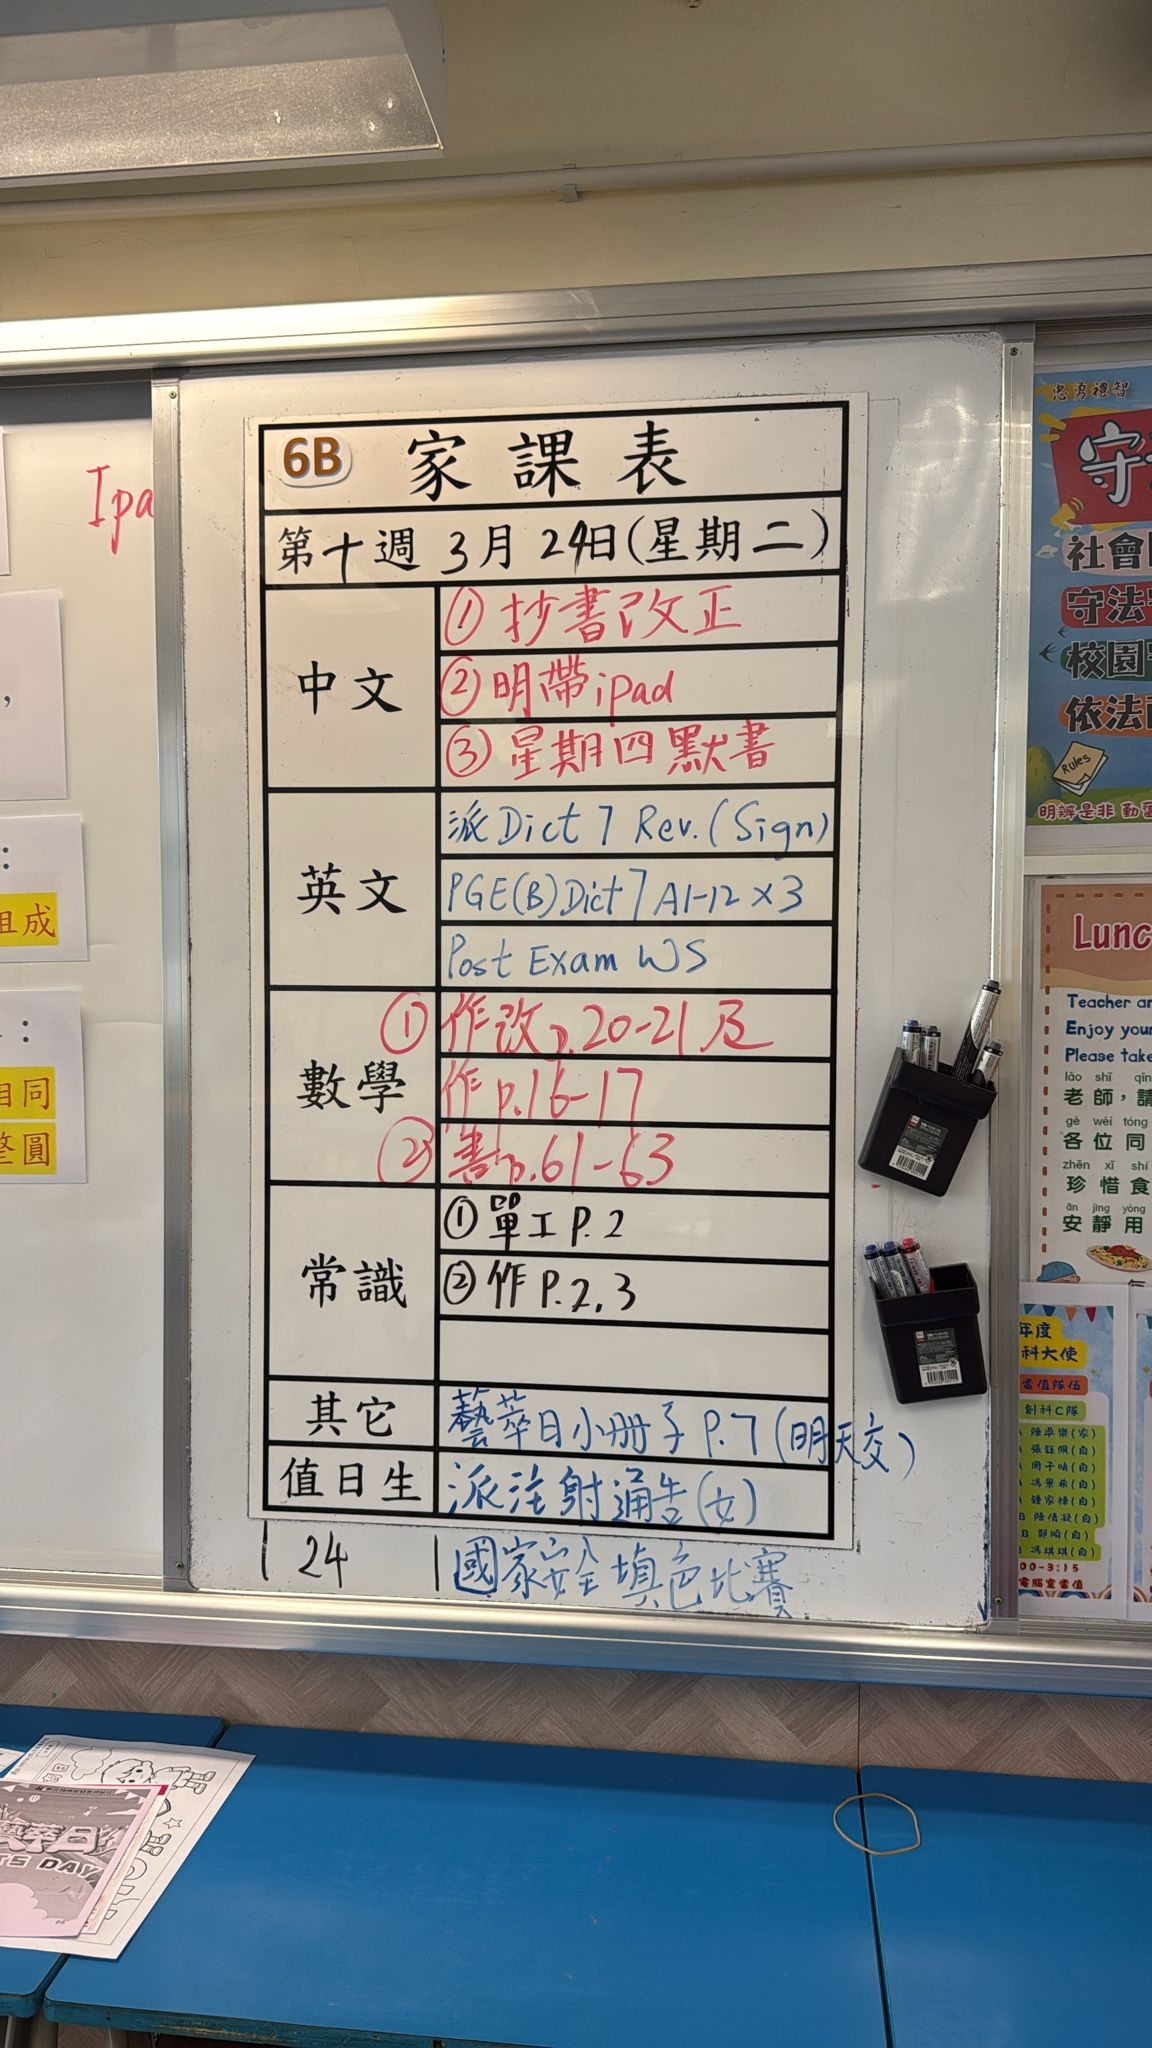 6B 家課表
第十週 3月24日(星期二)
中文
① 抄書改正
② 明帶ipad
③ 星期四默書
英文
派 Dict 7 Rev. (Sign)
PGE(B) Dict 7 A1-12 x3
Post Exam WS
數學
① 作改p.20-21及
作p.16-17
② 書p.61-63
常識
① 單工 P.2
② 作 P.2,3
其它
藝萃日小冊子 P.7 (明天交)
值日生
派注射通告(女)
24
國家安全填色比賽
Ipa
,
:
組成
:
相同
整圓
忠勇禮智
守
社會
守法
校園
依法
Rules
明辨是非 勤
Lunc
Teacher an
Enjoy your
Please take
lǎo shī qǐn
老師,請
gè wèi tóng
各位同
zhēn xī shí
珍惜食
ān jìng yòng
安靜用
年度
科大使
當值隊伍
創科C隊
陳卓樂(家)
張鈺佩(自)
周子晴(自)
馮景希(自)
鍾家棟(自)
B 陳倩凝(自)
馮琪琪(自)
00-3:15
電腦室當值
萃日
TS DAY